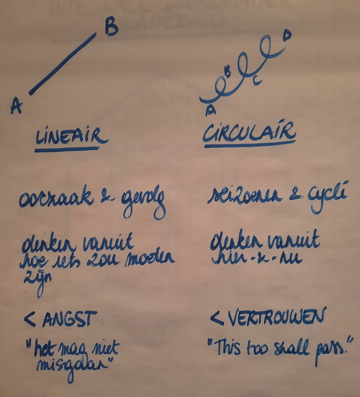 B
A
LINEAIR
oorzaak & gevolg
denken vanuit
hoe iets zou moeten
zijn
< ANGST
"het mag niet
misgaan"
D
B
C
A
CIRCULAIR
seizoenen & cycli
denken vanuit
hier-&-nu
< VERTROUWEN
"This too shall pass."